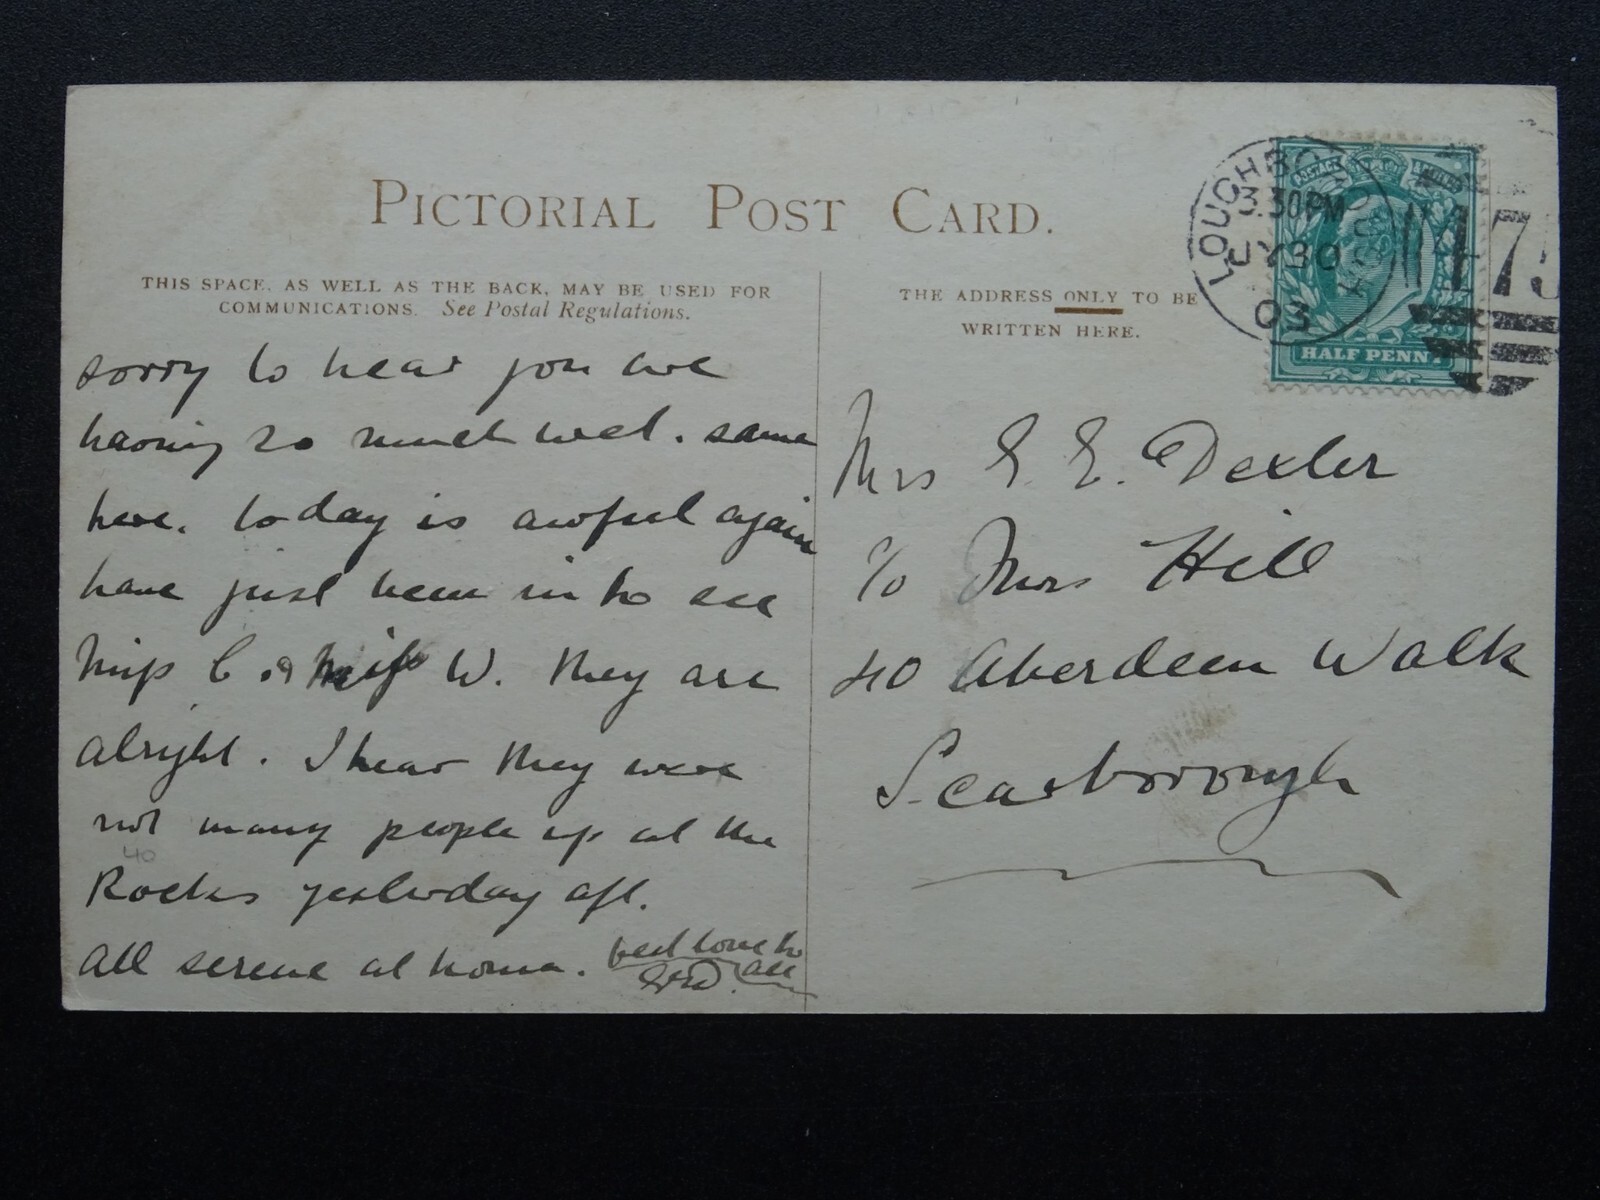 PICTORIAL POST CARD.
THIS SPACE, AS WELL AS THE BACK, MAY BE USED FOR
COMMUNICATIONS. See Postal Regulations.
sorry to hear you are
having so much wet. same
here. today is awful again
have just been in to see
Miss C. & Miss W. They are
alright. I hear they were
not many people up at the
40
Rocks yesterday aft.
All serene at home. best love to
all
THE ADDRESS ONLY TO BE
WRITTEN HERE.
Mrs E. E. Dexter
c/o Mrs Hill
40 Aberdeen Walk
Scarborough
LOUGHBOROUGH
3.30PM
JY 30
03
475
POSTAGE
HALF PENNY